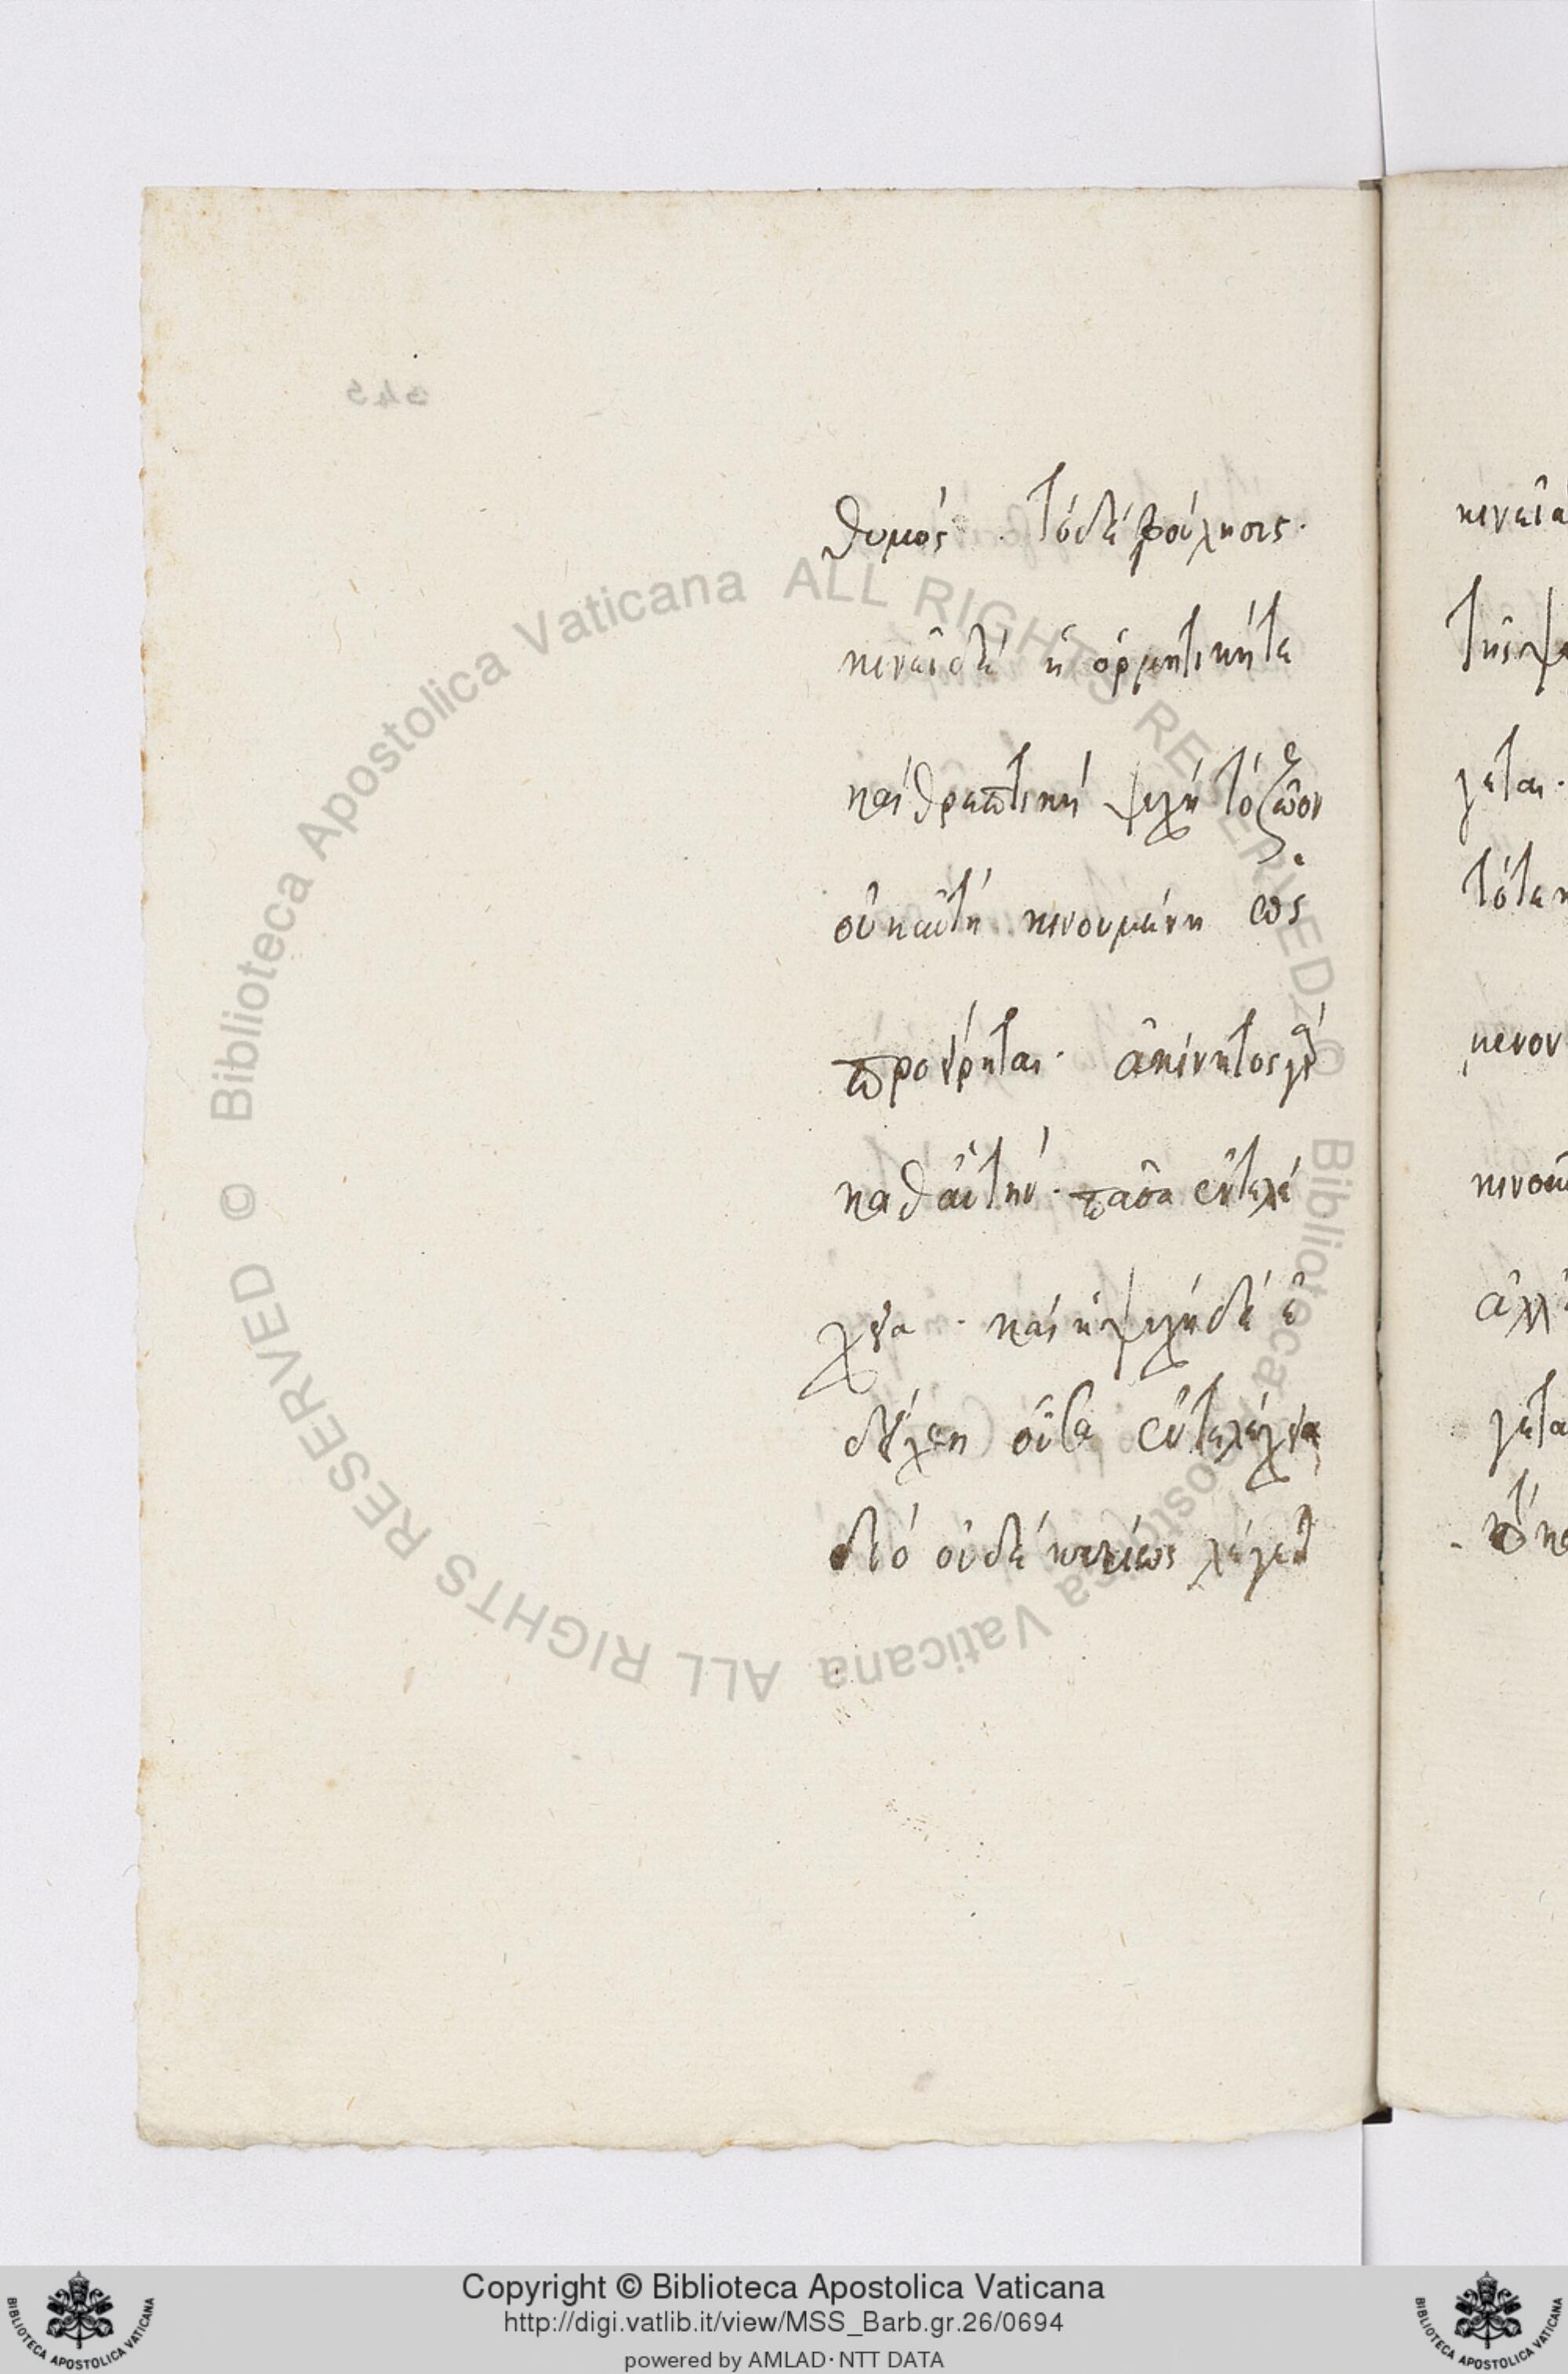 θυμός. τὸ δὲ βούλησις.
κινεῖ δὲ ἡ ὁρμητικήτε
καὶ θρεπτικὴ ψυχὴ τὸ ζῶον
οὐκ αὐτὴ κινουμένη ὡς
προείρηται. ἀκίνητος γὰρ
καθ αὑτήν. πᾶσα ἐντελέ
χεια. καὶ ἡ ψυχὴ δὲ ἐ
οὔτε ἐντελέχεια
διὸ οὐδὲ λέγεται
κινεῖ
γεται.
τότε
μενον
κινου
ἀλλ
γετα
Biblioteca Apostolica Vaticana ALL RIGHTS RESERVED ©
Biblioteca Apostolica Vaticana ALL RIGHTS RESERVED ©
Copyright © Biblioteca Apostolica Vaticana
http://digi.vatlib.it/view/MSS_Barb.gr.26/0694
powered by AMLAD·NTT DATA
BIBLIOTECA APOSTOLICA VATICANA
BIBLIOTECA APOSTOLICA VATICANA